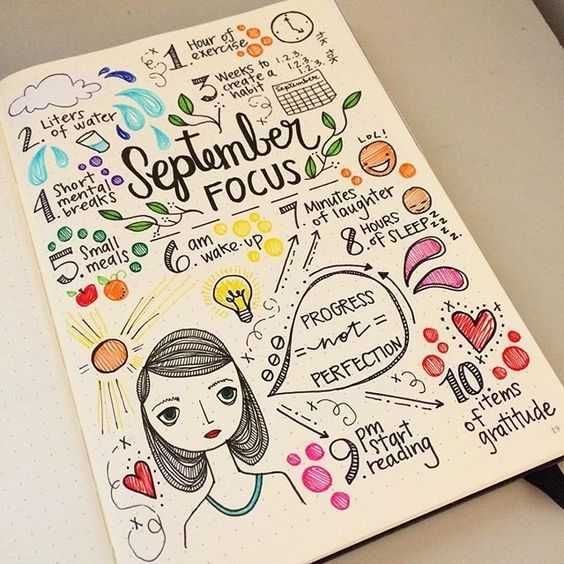 1. Hour of
exercise
3 Weeks to
create a
habit
1.2.3.
1.2.3.
1.2.3.
September
2. Liters
of water
September
FOCUS
4 Short
mental
breaks
LOL!
5. Small
meals
6 am
wake-up
7 Minutes
of laughter
8 HOURS
of SLEEP zzzzz
PROGRESS
=not=
PERFECTION
9 pm
start
reading
10 items
of
gratitude